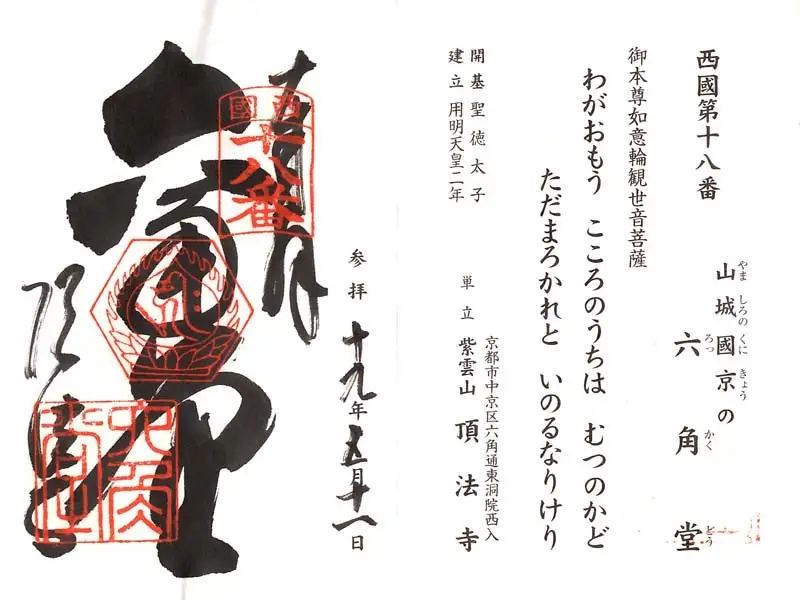 西國第十八番
やましろのくにきょう
山城國京の
ろっかくどう
六角堂
御本尊如意輪観世音菩薩
わがおもう こころのうちは むつのかど
ただまろかれと いのるなりけり
開基聖徳太子
建立用明天皇二年
京都市中京区六角通東洞院西入
単立 紫雲山 頂法寺
参拝 十九年五月十一日
西國
十八番
六角堂